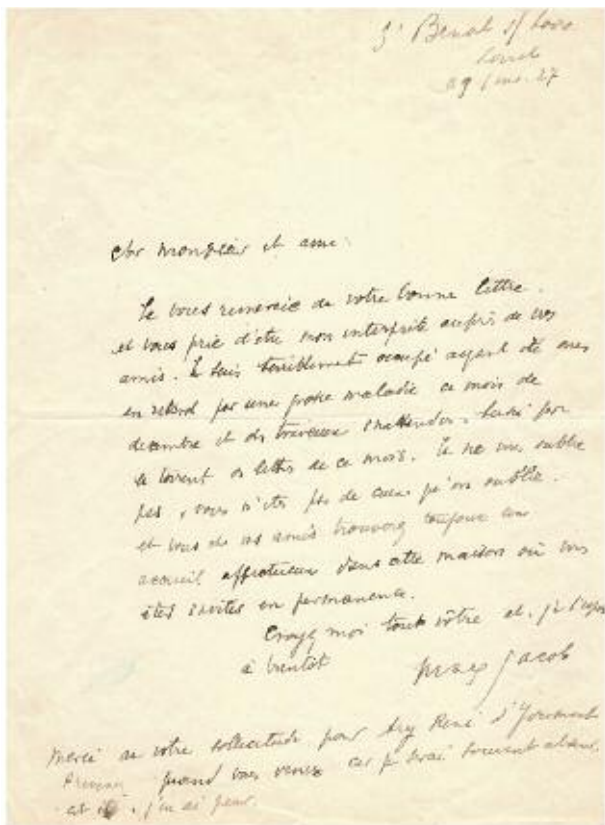 St Benoit s/ Loire
Loiret
29 janv. 27
cher monsieur et ami.
Je vous remercie de votre bonne lettre.
et vous prie d'être mon interprète auprès de vos
amis. Je suis terriblement occupé ayant été mis
en retard par une grosse maladie ce mois de
decembre et des travaux inattendus. par
le torrent de lettres de ce mois. Je ne vous oublie
pas, vous n'êtes pas de ceux qu'on oublie.
et vous et vos amis trouverez toujours un
accueil affectueux dans cette maison où vous
êtes invités en permanence.
Croyez moi tout vôtre et, je l'espère
à bientôt
Max Jacob
Merci de votre sollicitude pour René d'
quand vous venez car je serai souvent absent
cet été, j'en ai peur.